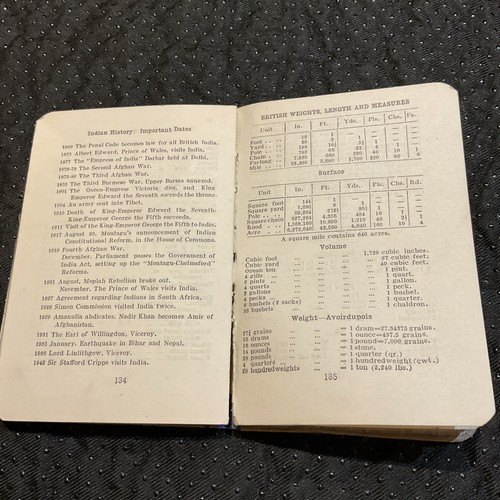 Indian History: Important Dates
1860 The Penal Code becomes law for all British India.
1875 Albert Edward, Prince of Wales, visits India.
1877 The "Empress of India" Darbar held at Delhi.
1878-79 The Second Afghan War.
1879-80 The Third Afghan War.
1885 The Third Burmese War. Upper Burma annexed.
1901 The Queen-Empress Victoria dies, and King
Emperor Edward the Seventh ascends the throne.
1904 An army sent into Tibet.
1910 Death of King-Emperor Edward the Seventh.
King-Emperor George the Fifth succeeds.
1911 Visit of the King-Emperor George the Fifth to India.
1917 August 20. Montagu's announcement of Indian
Constitutional Reform, in the House of Commons.
Fourth Afghan War.
December. Parliament passes the Government of
India Act, setting up the "Montagu-Chelmsford"
Reforms.
1921 August, Moplah Rebellion broke out.
November. The Prince of Wales visits India.
Agreement regarding Indians in South Africa.
1928 Simon Commission visited India twice.
Amanulla abdicates. Nadir Khan becomes Amir of
Afghanistan.
1931 The Earl of Willingdon, Viceroy.
January. Earthquake in Bihar and Nepal.
1936 Lord Linlithgow, Viceroy.
Sir Stafford Cripps visits India.
134
BRITISH WEIGHTS, LENGTH AND MEASURES
Unit In. Ft. Yds. Pls. Chs. Fs.
Foot
Yard
Pole
Chain
Furlong
Mile
Surface
Unit In. Ft. Yds. Pls. Chs. Rd.
Square foot 144
Square yard 1,296
Pole
Square chain
Rood
Acre
A square mile contains 640 acres.
Volume
Cubic foot 1,728 cubic inches.
Cubic yard 27 cubic feet.
Ocean ton 40 cubic feet.
4 gills 1 pint.
2 pints 1 quart.
4 quarts 1 gallon.
2 gallons 1 peck.
4 pecks 1 bushel.
8 bushels (2 sacks) 1 quarter.
36 bushels 1 chaldron.
Weight—Avoirdupois
grains = 1 dram=27.34375 grains.
16 drams = 1 ounce=437.5 grains.
16 ounces = 1 pound=7,000 grains.
14 pounds = 1 stone.
28 pounds = 1 quarter (qr.)
4 quarters = 1 hundredweight (cwt.)
20 hundredweights = 1 ton (2,240 lbs.)
135